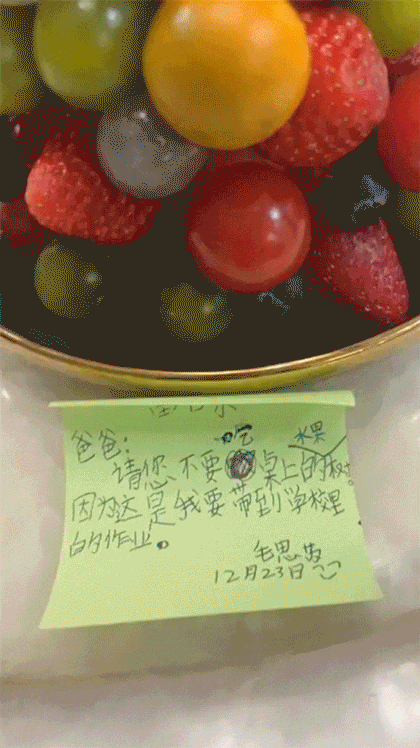 爸爸：
请您不要吃桌上的水果。
因为这是我要带到学校里
的作业。
毛思苗
12月23日